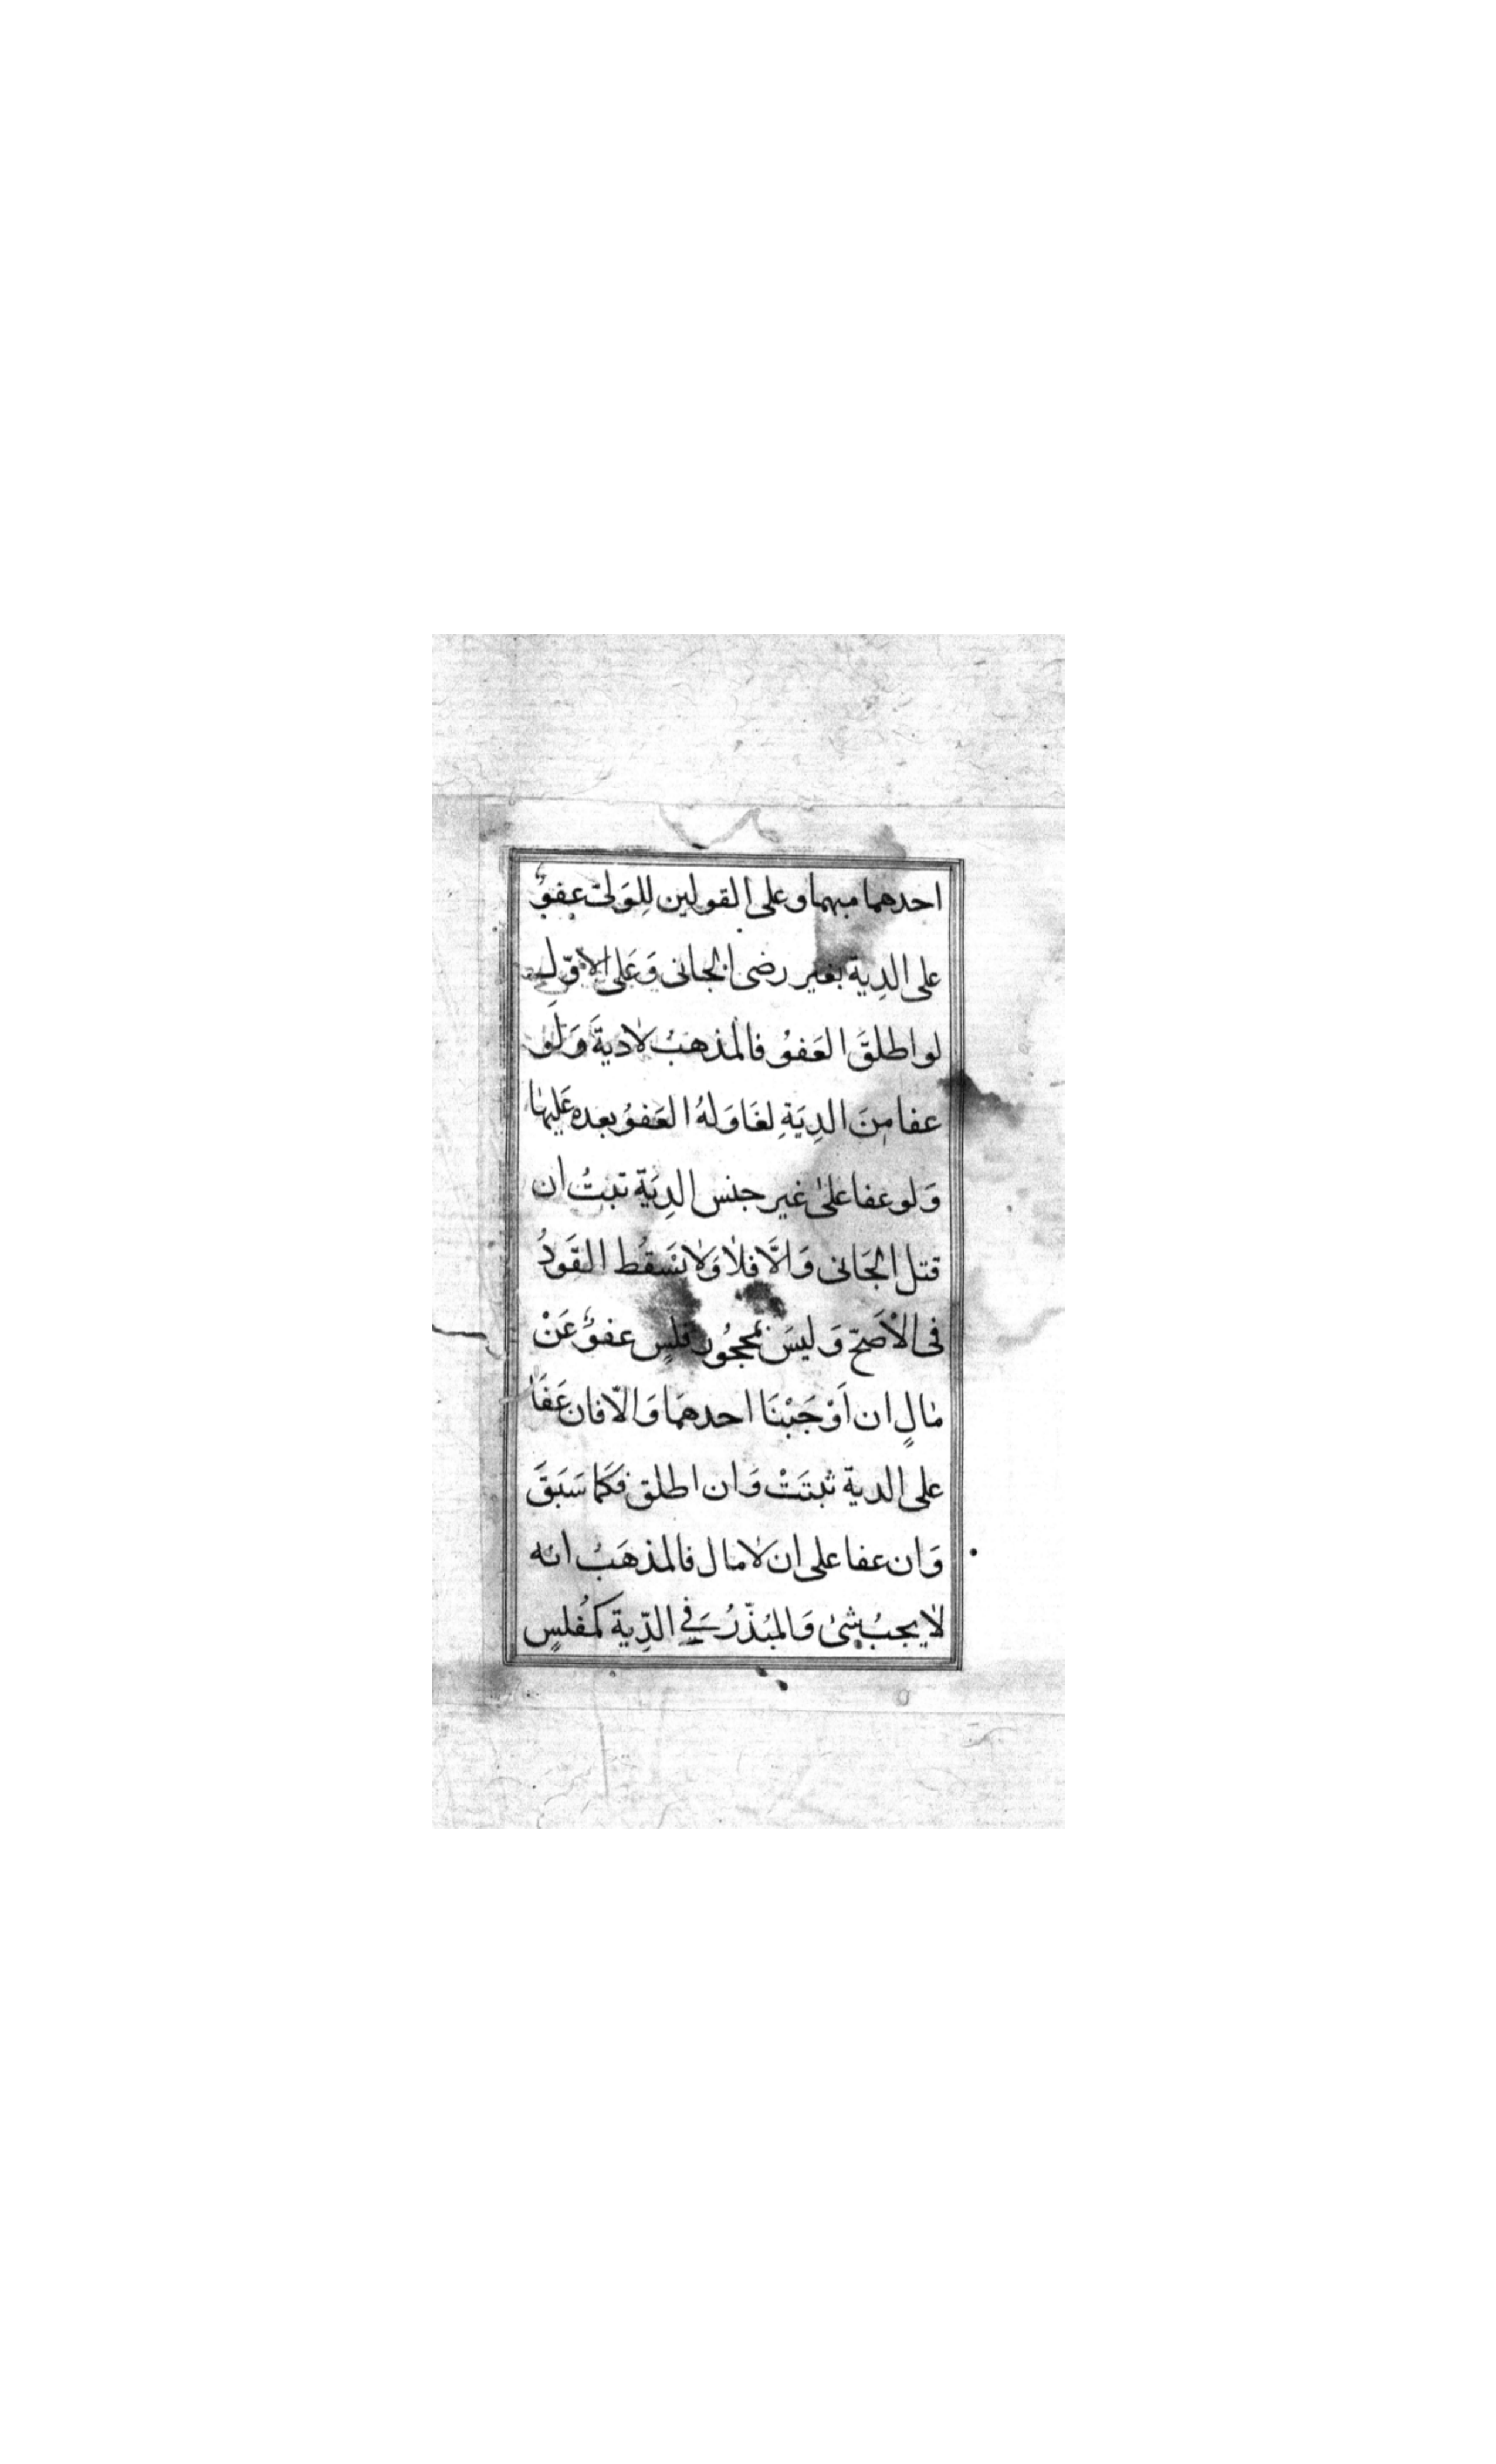 احدهما مبهما وعلى القولين لِلوَلىّ عفوٌ
على الدِية بغير رضى الجانى وَعَلى الاوّلِ
لو اطلقَ العَفوُ فالمذهبُ لادية وَلَو
عفا مِنَ الدِيَةِ لغَا وَلهُ العَفوُ بعده عَليهَا
وَلو عفا علىٰ غير جنس الدِيَة ثبتُ ان
قتل الجَانى وَالَّا فلا وَلا يَسْقُط القَوَدُ
فى الاْصَحّ وَليسَ لمحجُورِ فلسٍ عفوٌ عَنْ
مالٍ ان اَوْجَبْنَا احدهمَا وَالّا فان عَفَا
على الدية ثبتَتْ وَان اطلق فكَمَا سَبَقَ
وَان عفا على ان لا مال فالمذهَبُ انه
لا يجبُ شئ وَالمبُذّرُ فى الدّية كمُفلسٍ